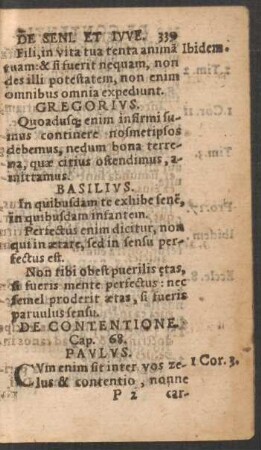 DE SENI. ET IVVE. 339
Fili, in vita tua tenta animã Ibidem.
tuam: & si fuerit nequam, non
des illi potestatem, non enim
omnibus omnia expediunt.
GREGORIVS.
Quoadusq; enim infirmi su-
mus continere nosmetipsos
debemus, nedum bona terre-
na, quæ citius ostendimus, a-
mittamus.
BASILIVS.
In quibusdam te exhibe senẽ,
in quibusdam infantem.
Perfectus enim dicitur, non
qui in ætate, sed in sensu per-
fectus est.
Non tibi obest puerilis ętas,
si fueris mente perfectus: nec
semel proderit ætas, si fueris
paruulus sensu.
DE CONTENTIONE.
Cap. 68.
PAVLVS.
CVm enim sit inter vos ze- 1 Cor. 3.
lus & contentio, nonne
P 2 car-